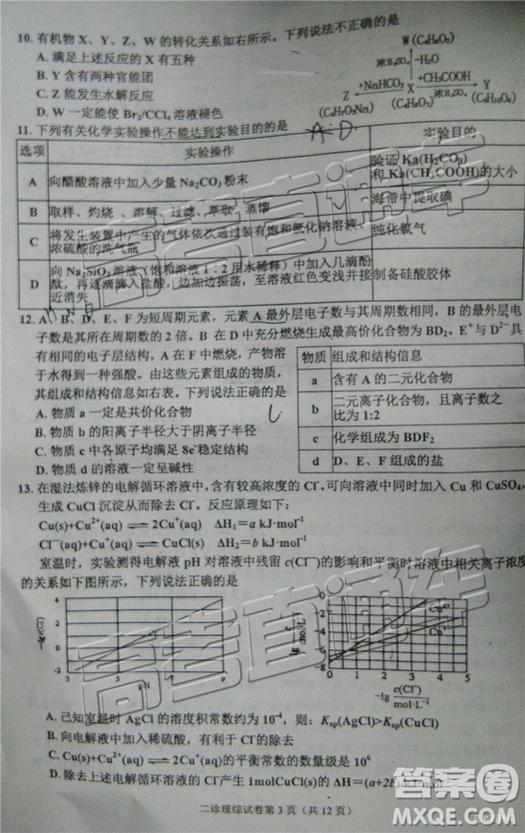 10. 有机物 X、Y、Z、W 的转化关系如右所示。下列说法不正确的是
A. 满足上述反应的 X 有五种
B. Y 含有两种官能团
C. Z 能发生水解反应
D. W 一定能使 Br₂/CCl₄ 溶液褪色
浓H₂SO₄
+NaHCO₃
Z
X
+CH₃COOH
浓H₂SO₄
Y
11. 下列有关化学实验操作不能达到实验目的的是
A-D
选项 实验操作 实验目的
A 向醋酸溶液中加入少量 Na₂CO₃ 粉末 验证 Ka(H₂CO₃)和 Ka(CH₃COOH)的大小
B 取样、灼烧、溶解、过滤、萃取、蒸馏 海带中提取碘
C 将发生装置中产生的气体依次通过装有饱和氯化钠溶液、浓硫酸的洗气瓶 纯化氯气
D 向 Na₂SiO₃ 溶液（饱和溶液 1：2 用水稀释）中加入几滴酚酞，再逐滴滴入盐酸，边加边振荡，至溶液红色变浅并接近消失 制备硅酸胶体
12. A、B、D、E、F 为短周期元素，元素 A 最外层电子数与其周期数相同，B 的最外层电
子数是其所在周期数的 2 倍。B 在 D 中充分燃烧生成最高价化合物为 BD₂。E⁺与 D²⁻具
有相同的电子层结构。A 在 F 中燃烧，产物溶
于水得到一种强酸。由这些元素组成的物质，
其组成和结构信息如右表。下列说法正确的是
A. 物质 a 一定是共价化合物
B. 物质 b 的阳离子半径大于阴离子半径
C. 物质 c 中各原子均满足 8e⁻稳定结构
D. 物质 d 的溶液一定呈碱性
物质 组成和结构信息
a 含有 A 的二元化合物
b 二元离子化合物，且离子数之比为 1:2
c 化学组成为 BDF₂
d D、E、F 组成的盐
13. 在湿法炼锌的电解循环溶液中，含有较高浓度的 Cl⁻。可向溶液中同时加入 Cu 和 CuSO₄，
生成 CuCl 沉淀从而除去 Cl⁻。反应原理如下：
Cu(s)+Cu²⁺(aq) ⇌ 2Cu⁺(aq) ΔH₁=a kJ·mol⁻¹
Cl⁻(aq)+Cu⁺(aq) ⇌ CuCl(s) ΔH₂=b kJ·mol⁻¹
室温时，实验测得电解液 pH 对溶液中残留 c(Cl⁻)的影响和平衡时溶液中相关离子浓度
的关系如下图所示，下列说法正确的是
pH
Cu²⁺
Cu⁺
-lg c(Cl⁻)/mol·L⁻¹
A. 已知室温时 AgCl 的溶度积常数约为 10⁻⁴，则：Ksp(AgCl)>Ksp(CuCl)
B. 向电解液中加入稀硫酸，有利于 Cl⁻的除去
C. Cu(s)+Cu²⁺(aq) ⇌ 2Cu⁺(aq)的平衡常数的数量级是 10⁶
D. 除去上述电解循环溶液的 Cl⁻产生 1molCuCl(s)的 ΔH=(a+2b)
二诊理综试卷第 3 页（共 12 页）
高考直通车
高考直通车
答案圈